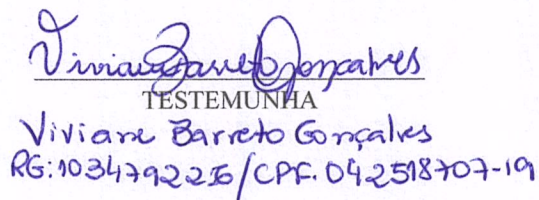 Viviane Barreto Gonçalves
TESTEMUNHA
Viviane Barreto Gonçalves
RG: 1034792256/CPF. 042518707-19